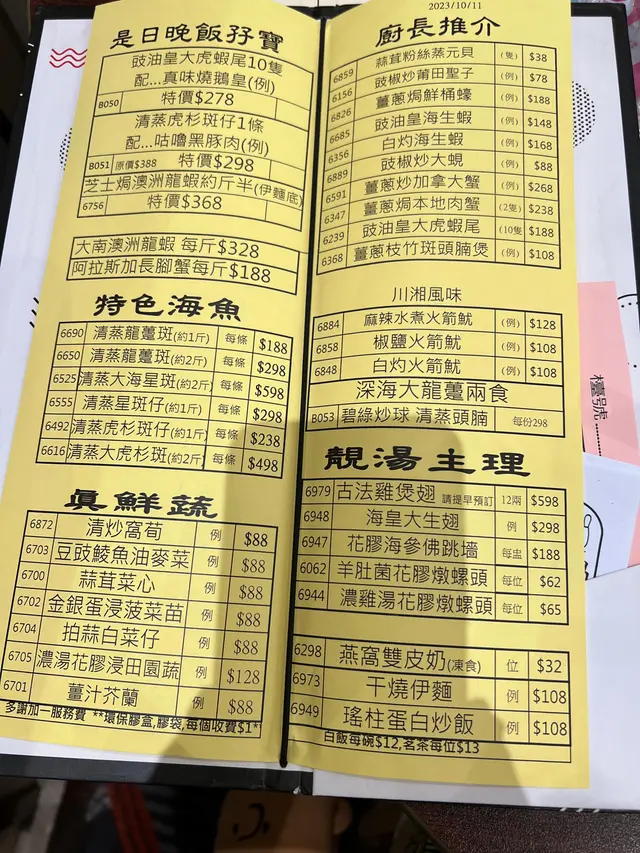 是日晚飯孖寶
豉油皇大虎蝦尾10隻
配...真味燒鵝皇(例)
B050 特價$278
清蒸虎杉斑仔1條
配...咕嚕黑豚肉(例)
B051 原價$388 特價$298
芝士焗澳洲龍蝦約斤半(伊麵底)
6756 特價$368
大南澳洲龍蝦 每斤$328
阿拉斯加長腳蟹每斤$188
特色海魚
6690 清蒸龍躉斑(約1斤) 每條 $188
6650 清蒸龍躉斑(約2斤) 每條 $298
6525 清蒸大海星斑(約2斤) 每條 $598
6555 清蒸星斑仔(約1斤) 每條 $298
6492 清蒸虎杉斑仔(約1斤) 每條 $238
6616 清蒸大虎杉斑(約2斤) 每條 $498
真鮮蔬
6872 清炒窩荀 例 $88
6703 豆豉鯪魚油麥菜 例 $88
6700 蒜茸菜心 例 $88
6702 金銀蛋浸菠菜苗 例 $88
6704 拍蒜白菜仔 例 $88
6705 濃湯花膠浸田園蔬 例 $128
6701 薑汁芥蘭 例 $88
多謝加一服務費 **環保膠盒,膠袋,每個收費$1*
2023/10/11
廚長推介
6859 蒜茸粉絲蒸元貝 (隻) $38
6156 豉椒炒莆田聖子 (例) $78
6826 薑蔥焗鮮桶蠔 (例) $188
6685 豉油皇海生蝦 (例) $148
6356 白灼海生蝦 (例) $168
6889 豉椒炒大蜆 (例) $88
6591 薑蔥炒加拿大蟹 (例) $268
6347 薑蔥焗本地肉蟹 (2隻) $238
6239 豉油皇大虎蝦尾 (10隻 $188
6368 薑蔥枝竹斑頭腩煲 (例) $108
川湘風味
6884 麻辣水煮火箭魷 (例) $128
6858 椒鹽火箭魷 (例) $108
6848 白灼火箭魷 (例) $108
深海大龍躉兩食
B053 碧綠炒球 清蒸頭腩 每份298
靚湯主理
6979 古法雞煲翅 請提早預訂 12兩 $598
6948 海皇大生翅 例 $298
6947 花膠海參佛跳墻 每盅 $188
6062 羊肚菌花膠燉螺頭 每位 $62
6944 濃雞湯花膠燉螺頭 每位 $65
6298 燕窩雙皮奶(凍食) 位 $32
6973 干燒伊麵 例 $108
6949 瑤柱蛋白炒飯 例 $108
白飯每碗$12,茗茶每位$13
檯號